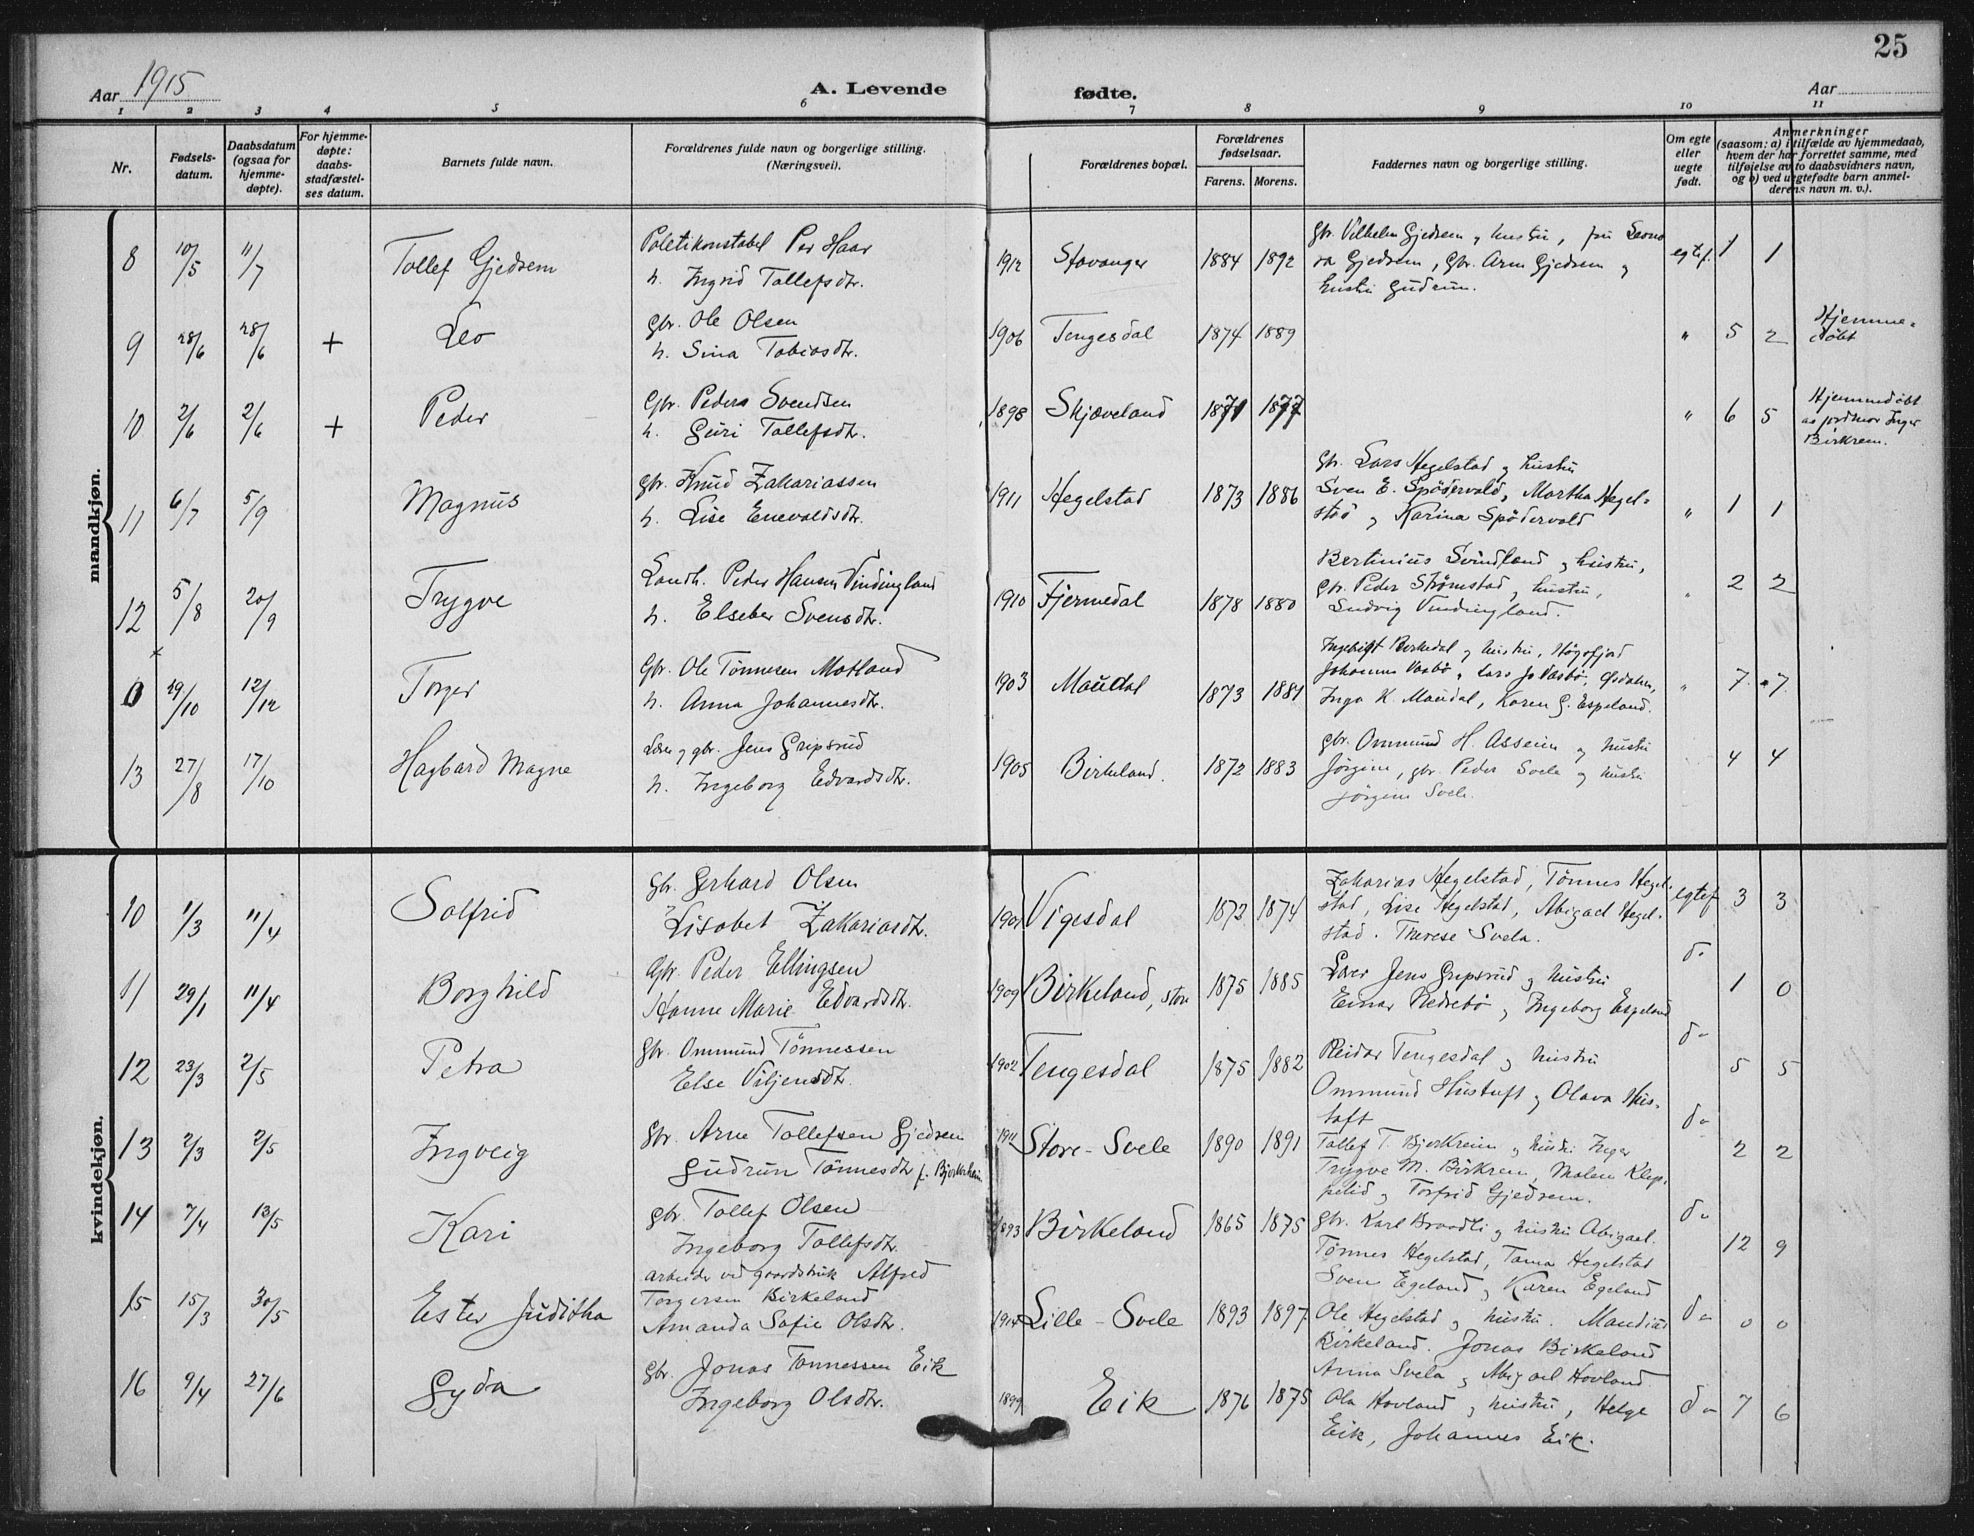 25
Aar 1915
A. Levende
fødte.
Aar
1 2 3 4 5 6 7 8 9 10 11
Nr.
Fødsels-
datum.
Daabsdatum
(ogsaa for
hjemme-
døpte).
For hjemme-
døpte:
daabs-
stadfæstel-
ses datum.
Barnets fulde navn.
Forældrenes fulde navn og borgerlige stilling.
(Næringsvei).
Forældrenes bopæl.
Forældrenes
fødselsaar.
Farens. Morens.
Faddernes navn og borgerlige stilling.
Om egte
eller
uegte
født.
Anmerkninger
(saasom: a) i tilfælde av hjemmedaab,
hvem der har forrettet samme, med
tilføielse av to daabsvidners navn,
og b) ved uegtefødte barn anmel-
derens navn m. v.).
mandkjøn.
8 10/5 11/7 Tollef Gjedrem
Politikonstabel Per Haar
h. Ingrid Tollefsdtr.
1912 Stavanger 1884 1892
Gbr. Vilhelm Gjedrem og hustru, fru Leono
ra Gjedrem, Gbr. Arne Gjedrem og
hustru Gudrun.
egtef. 1 1
9 28/6 28/6 + Leo
Gbr. Ole Olsen
h. Sina Tobiasdtr.
1906 Tengesdal 1874 1889
" 5 2
Hjemme-
døbt
10 2/6 2/6 + Peder
Gbr. Peder Svendsen
h. Guri Tollefsdtr.
1898 Skjæveland 1871 1877
" 6 5
Hjemmedøbt
av jordmor Inger
Birkrem.
11 6/7 5/9 Magnus
gbr. Knud Zakariassen
h. Lise Enevoldsdtr.
1911 Hegelstad 1873 1886
Gbr. Lars Hegelstad og hustru
Sven E. Spødervold, Martha Hegel-
stad og Karina Spødervold
" 1 1
12 5/8 20/9 Trygve
Landh. Peder Hansen Vindingland
h. Elseber Svensdtr.
1910 Fjermedal 1878 1880
Bertinius Svindland og hustru,
Gbr. Peder Strømstad, hustru,
Ludvig Vindingland.
" 2 2
29/10 12/12 Torger
Gbr. Ole Tønnesen Motland
h. Anna Johannesdtr.
1903 Maudal 1873 1881
hustru, Høgsfjord
Inga K. Maudal, Karen G. Espeland.
" 7 7
13 27/8 17/10 Hagbard Magne
Lærer og gbr. Jens Gripsrud
h. Ingeborg Edvardsdtr.
1905 Birkeland. 1872 1883
gbr. Ommund H. Asseim og hustru
Jørgine, gbr. Peder Svela og hustru
Jørgine Svela.
4 4
kvindekjøn.
10 1/3 11/4 Solfrid
Gbr. Gerhard Olsen
Lisabet Zakariasdtr.
1901 Vigesdal 1872 1874
Zakarias Hegelstad, Tønnes Hegel-
stad, Lise Hegelstad, Abigael Hegel-
stad. Therese Svela.
egtef 3 3
11 29/1 11/4 Borghild
Gbr. Peder Ellingsen
Hanne Marie Edvardsdtr.
1909 Birkeland, store 1875 1885
Lærer Jens Gripsrud og hustru
Einar Nedrebø og Ingeborg Espeland
do 1 0
12 23/3 2/5 Petra
Gbr. Ommund Tønnessen
Else Viljensdtr.
1902 Tengesdal 1875 1882
Reidar Tengesdal og hustru
Ommund Hustuft og Olava Hus-
tuft
do 5 5
13 2/3 2/5 Ingveig
Gbr. Arne Tollefsen Gjedrem
Gudrun Tønnesdtr f. Bjerkreim
1911 Store-Svele 1890 1891
Tollef T. Bjerkreim og hustru Inger
Trygve M. Birkrem, Malen Klep-
pelid og Torfrid Gjedrem.
do 2 2
14 7/4 13/5 Kari
gbr. Tollef Olsen
Ingeborg Tollefsdtr.
1893 Birkeland 1865 1875
gbr. Karl Braadli og hustru Abigael.
Tønnes Hegelstad, Tama Hegelstad
Sven Egeland, Karen Egeland
do 12 9
15 15/3 30/5 Ester Juditha
arbeider ved gaardsbruk Alfred
Torgersen Birkeland
Amanda Sofie Olsdtr.
1914 Lille-Svele 1893 1897
Ole Hegelstad og hustru. Mandius
Birkeland. Jonas Birkeland
Anna Svela og Abigael Hovland.
do 0 0
16 9/4 27/6 Gyda
Gbr. Jonas Tønnessen Eik
Ingeborg Olsdtr.
1899 Eik 1876 1875
Ola Hovland og hustru, Helge
Eik, Johannes Eik.
do 7 6